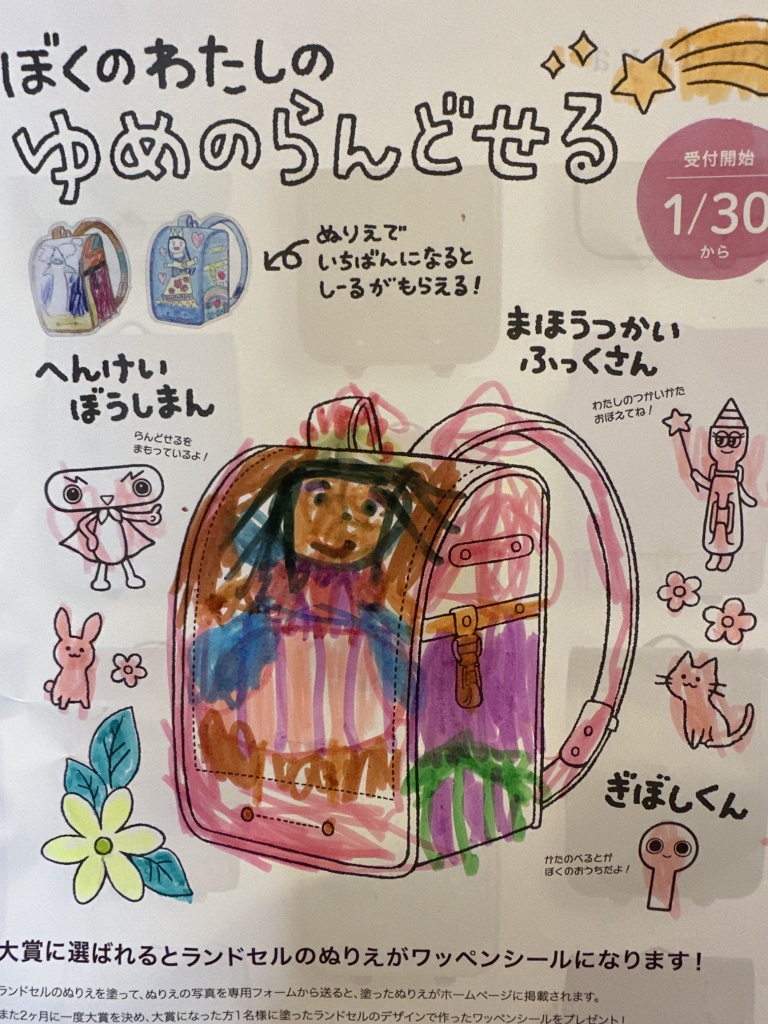 ぼくのわたしの
ゆめのらんどせる
受付開始
1/30
から
ぬりえで
いちばんになると
しーるがもらえる!
まほうつかい
ふっくさん
わたしのつかいかた
おぼえてね!
へんけい
ぼうしまん
らんどせるを
まもっているよ!
ぎぼしくん
かたのべるとが
ぼくのおうちだよ!
大賞に選ばれるとランドセルのぬりえがワッペンシールになります!
ランドセルのぬりえを塗って、ぬりえの写真を専用フォームから送ると、塗ったぬりえがホームページに掲載されます。
また2ヶ月に一度大賞を決め、大賞になった方1名様に塗ったランドセルのデザインで作ったワッペンシールをプレゼント!